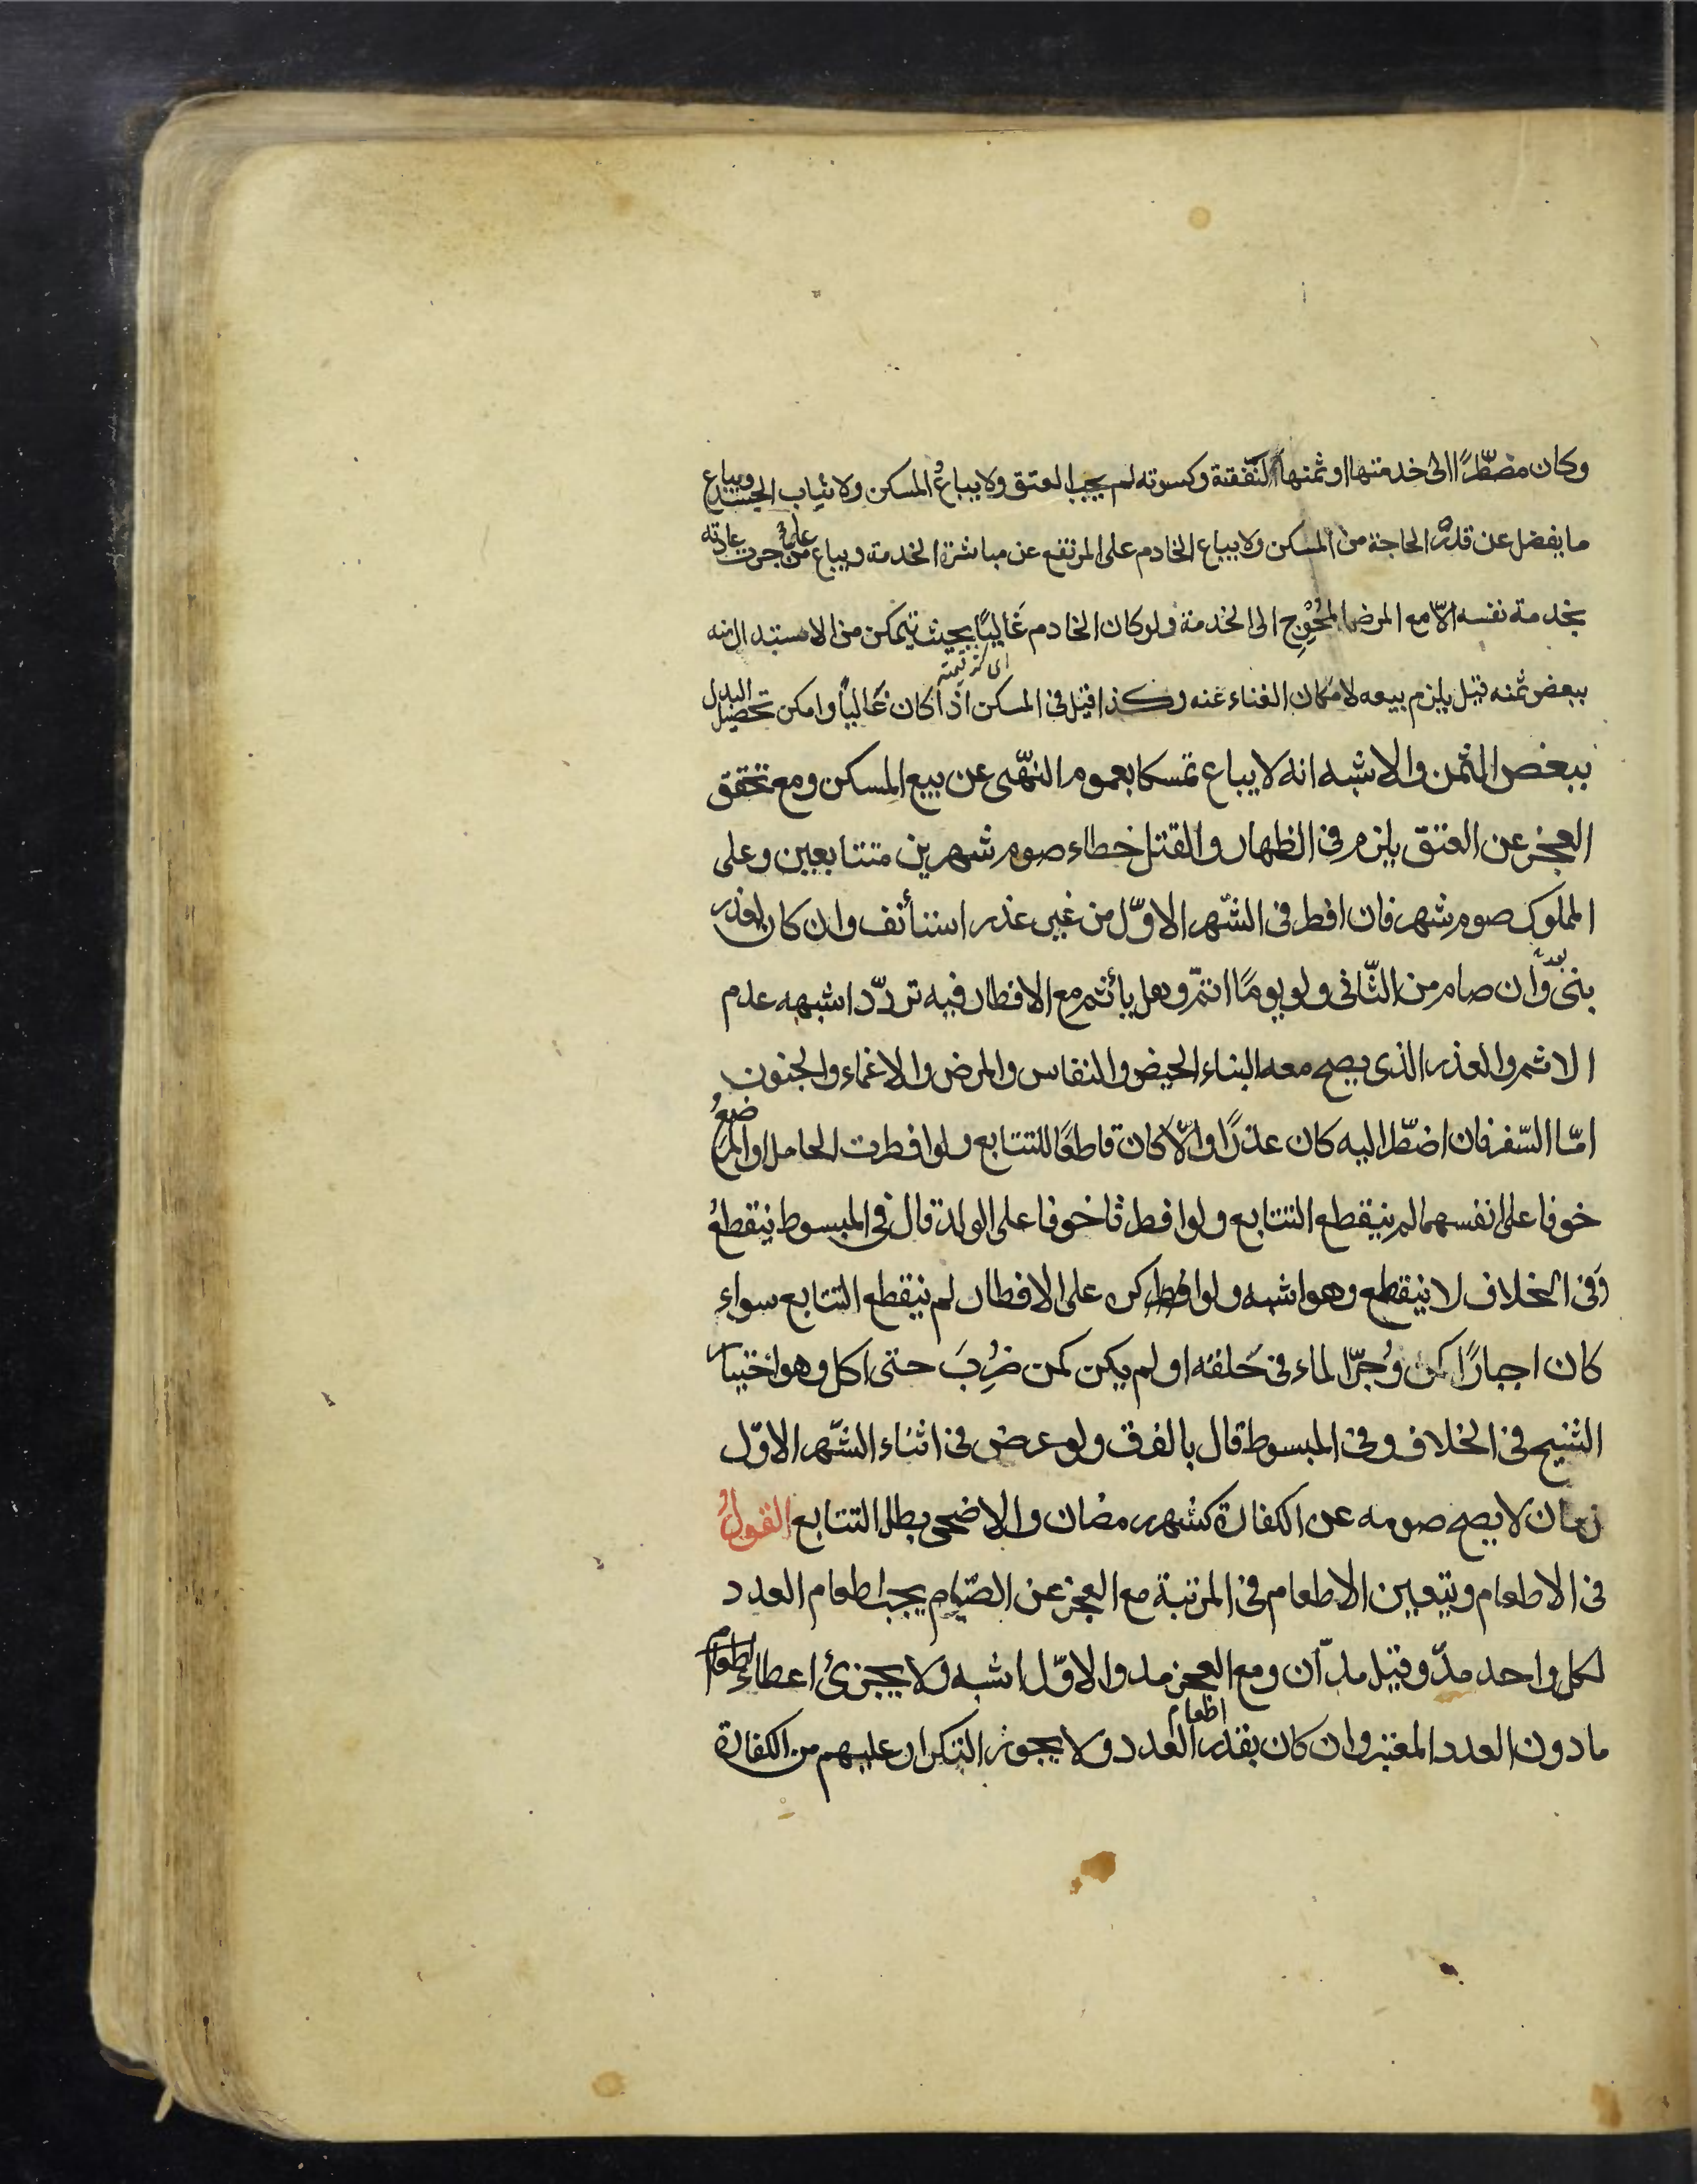 وكان مضطّرًا الى خدمتها او ثمنها لنّفقته وكسوته لم يجب العتق ولا يباعُ المسكن ولا ثياب الجسد ويباع
ما يفضل عن قدر الحاجة من المسكن ولا يباع الخادم على المرتفع عن مباشرة الخدمة ويباع على من جرت عادته
بخدمة نفسه الّا مع المرض المُحْوِج الى الخدمة ولو كان الخادم غَاليًا بحيث يتمكن من الاستبدال منه
اى كثر قيمته
ببعض ثمنه قيل يلزم بيعه لامكان الغناء عنه وكذا قيل فى المسكن اذا كان غَاليًا وامكن تحصيل البدل
ببعض الثمن والاشبه انه لا يباع تمسكا بعموم النهّى عن بيع المسكن ومع تحقق
العجز عن العتق يلزم فى الظهار والقتل خطاء صوم شهرين متتابعين وعلى
المملوك صوم شهر فان افطر فى الشّهر الاوّل من غير عذر استأنف وان كان لعذر
بنى وان صام من الثّانى ولو يومًا اتمّ وهل يأثم مع الافطار فيه تردّد اشبهه عدم
الاثم والعذر الذى يصح معه البناء الحيض والنفاس والمرض والاغماء والجنون
امّا السّفر فان اضطّر اليه كان عذرًا والّا كان قاطعًا للتتابع ولو افطرت الحامل او المرضعُ
خوفا على انفسهما لم ينقطع التتابع ولو افطرتا خوفا على الولد قال فى المبسوط ينقطعُ
وَفى الخلاف لا ينقطع وهو اشبه ولو اكره على الافطار لم ينقطع التتابع سواء
كان اجبارًا كمن وُجرّ الماء فى حَلقه او لم يكن كمن ضُرِبَ حتى اكل وهو اختيار
الشيخ فى الخلاف وفى المبسوط قال بالفرق ولو عرض فى اثناء الشّهر الاوّل
زمان لا يصح صومه عن الكفارة كشهر رمضان والاضحى بطل التتابع القولُ
فى الاطعام ويتعين الاطعام فى المرتبة مع العجز عن الصّيام يجب اطعام العدد
لكل واحد مدّ وقيل مدّان ومع العجز مد والاوّل اشبه ولا يجزئ اعطاء لطعام
اطعام
ما دون العدد المعتبر وان كان بقدر العدد ولا يجوز التكرار عليهم من الكفارة